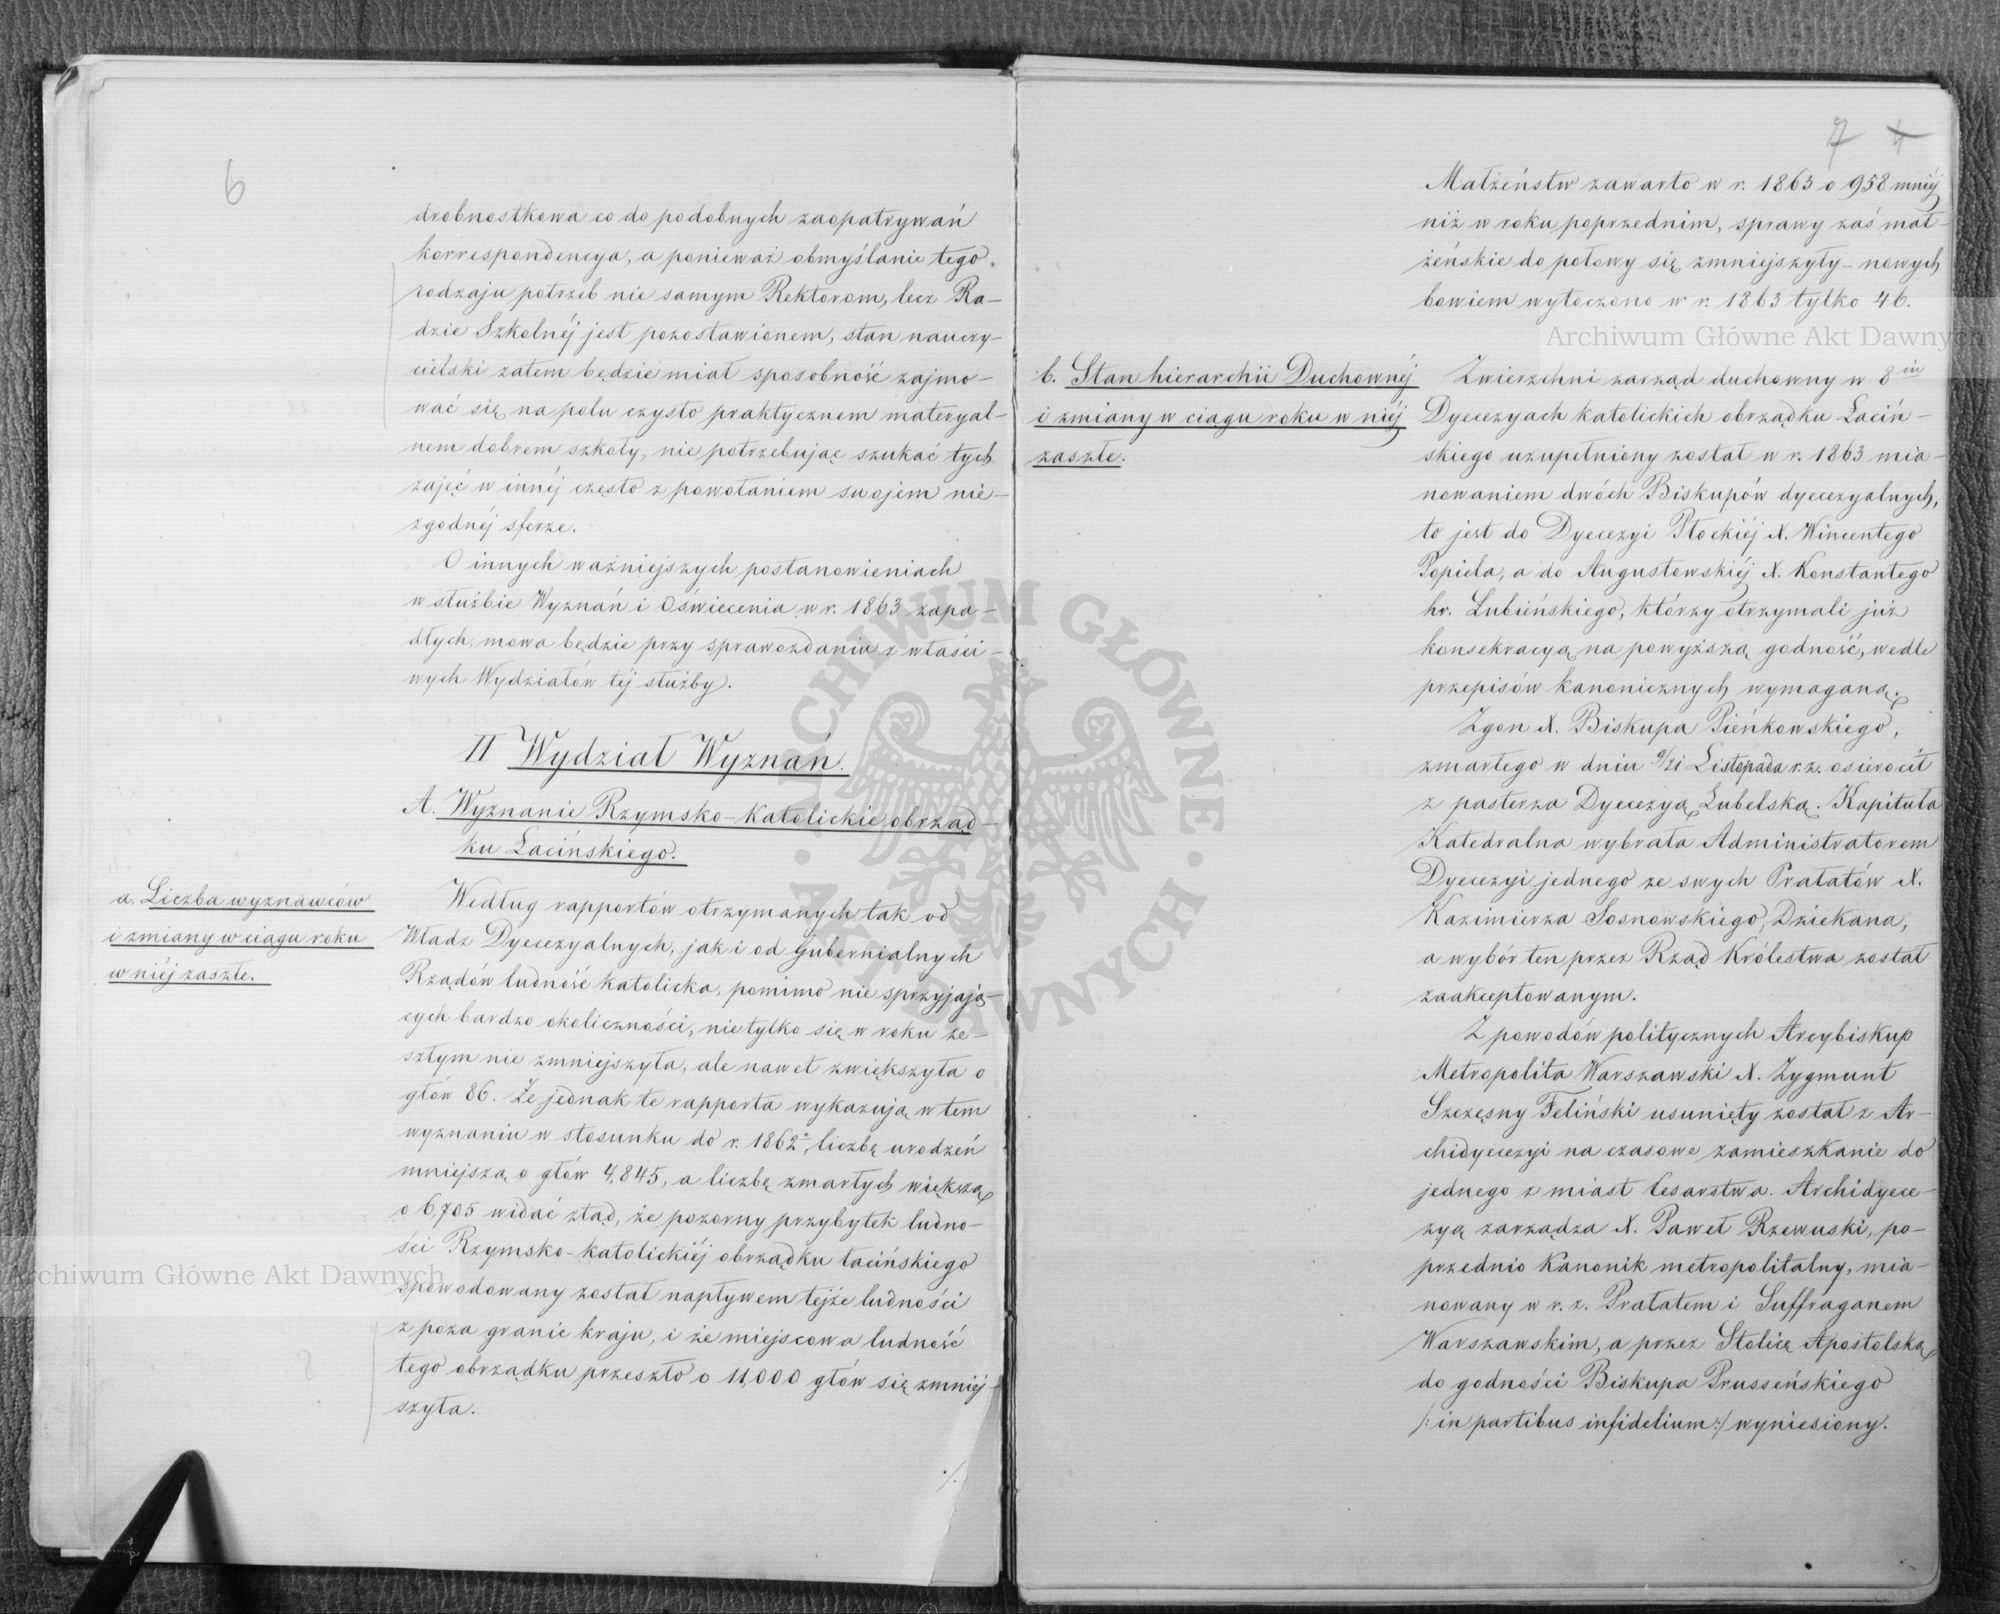 6
drobnostkowa co do podobnych zaopatrywań
korrespondencya, a ponieważ obmyślanie tego
rodzaju potrzeb nie samym Rektorom, lecz Ra-
dzie Szkolnéj jest pozostawionem, stan nauczy-
cielski zatem będzie miał sposobność zajmo-
wać się na polu czysto praktycznem materyal-
nem dobrem szkoły, nie potrzebując szukać tych
zajęć w innéj często z powołaniem swojem nie-
zgodnéj sferze.
O innych ważniejszych postanowieniach
w służbie Wyznań i Oświecenia w r. 1863 zapa-
dłych, mowa będzie przy sprawozdaniu z właści-
wych Wydziałów téj służby.
II Wydział Wyznań.
A. Wyznanie Rzymsko-Katolickie obrząd-
ku Łacińskiego.
a. Liczba wyznawców
i zmiany w ciągu roku
w niéj zaszłe.
Według rapportów otrzymanych tak od
Władz Dyecezyalnych, jak i od Gubernialnych
Rządów ludność katolicka, pomimo nie sprzyjają-
cych bardzo okoliczności, nietylko się w roku ze-
szłym nie zmniejszyła, ale nawet zwiększyła o
głów 86. Że jednak te rapporta wykazują w tem
wyznaniu w stosunku do r. 1862º, liczbę urodzeń
mniejszą o głów 4,845, a liczbę zmarłych większą
o 6,705 widać ztąd, że pozorny przybytek ludno-
ści Rzymsko-katolickiéj obrządku łacińskiego
spowodowany został napływem tejże ludności
z poza granic kraju, i że miejscowa ludność
tego obrządku przeszło o 11,000 głów się zmniej-
szyła.
./.
7
Małżeństw zawarto w r. 1863 o 958 mniéj
niż w roku poprzednim, sprawy zaś mał-
żeńskie do połowy się zmniejszyły – nowych
bowiem wytoczono w r. 1863 tylko 46.
b. Stan hierarchii Duchownéj
i zmiany w ciągu roku w niéj
zaszłe.
Zwierzchni zarząd duchowny w 8iu
Dyecezyach katolickich obrządku Łaciń-
skiego uzupełniony został w r. 1863 mia-
nowaniem dwóch Biskupów dyecezyalnych,
to jest do Dyecezyi Płockiéj X. Wincentego
Popiela, a do Augustowskiéj X. Konstantego
hr. Łubieńskiego, którzy otrzymali już
konsekracyą na powyższą godność, wedle
przepisów kanonicznych wymaganą.
Zgon X. Biskupa Pieńkowskiego,
zmarłego w dniu 9/21 Listopada r. z. osierocił
z pasterza Dyecezyą Lubelską. Kapituła
Katedralna wybrała Administratorem
Dyecezyi jednego ze swych Prałatów X.
Kazimierza Sosnowskiego, Dziekana,
a wybór ten przez Rząd Królestwa został
zaakceptowanym.
Z powodów politycznych Arcybiskup
Metropolita Warszawski X. Zygmunt
Szczęsny Feliński usunięty został z Ar-
chidyecezyi na czasowe zamieszkanie do
jednego z miast Cesarstwa. Archidyece-
zyą zarządza X. Paweł Rzewuski, po-
przednio Kanonik metropolitalny, mia-
nowany w r. z. Prałatem i Suffraganem
Warszawskim, a przez Stolicę Apostolską
do godności Biskupa Prusseńskiego
/: in partibus infidelium :/ wyniesiony.
Archiwum Główne Akt Dawnych
Archiwum Główne Akt Dawnych
ARCHIWUM GŁÓWNE AKT DAWNYCH